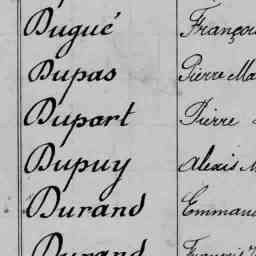 Dugué François
Dupas Pierre Ma
Dupart Pierre
Dupuy Alexis M
Durand Emman
Durand François